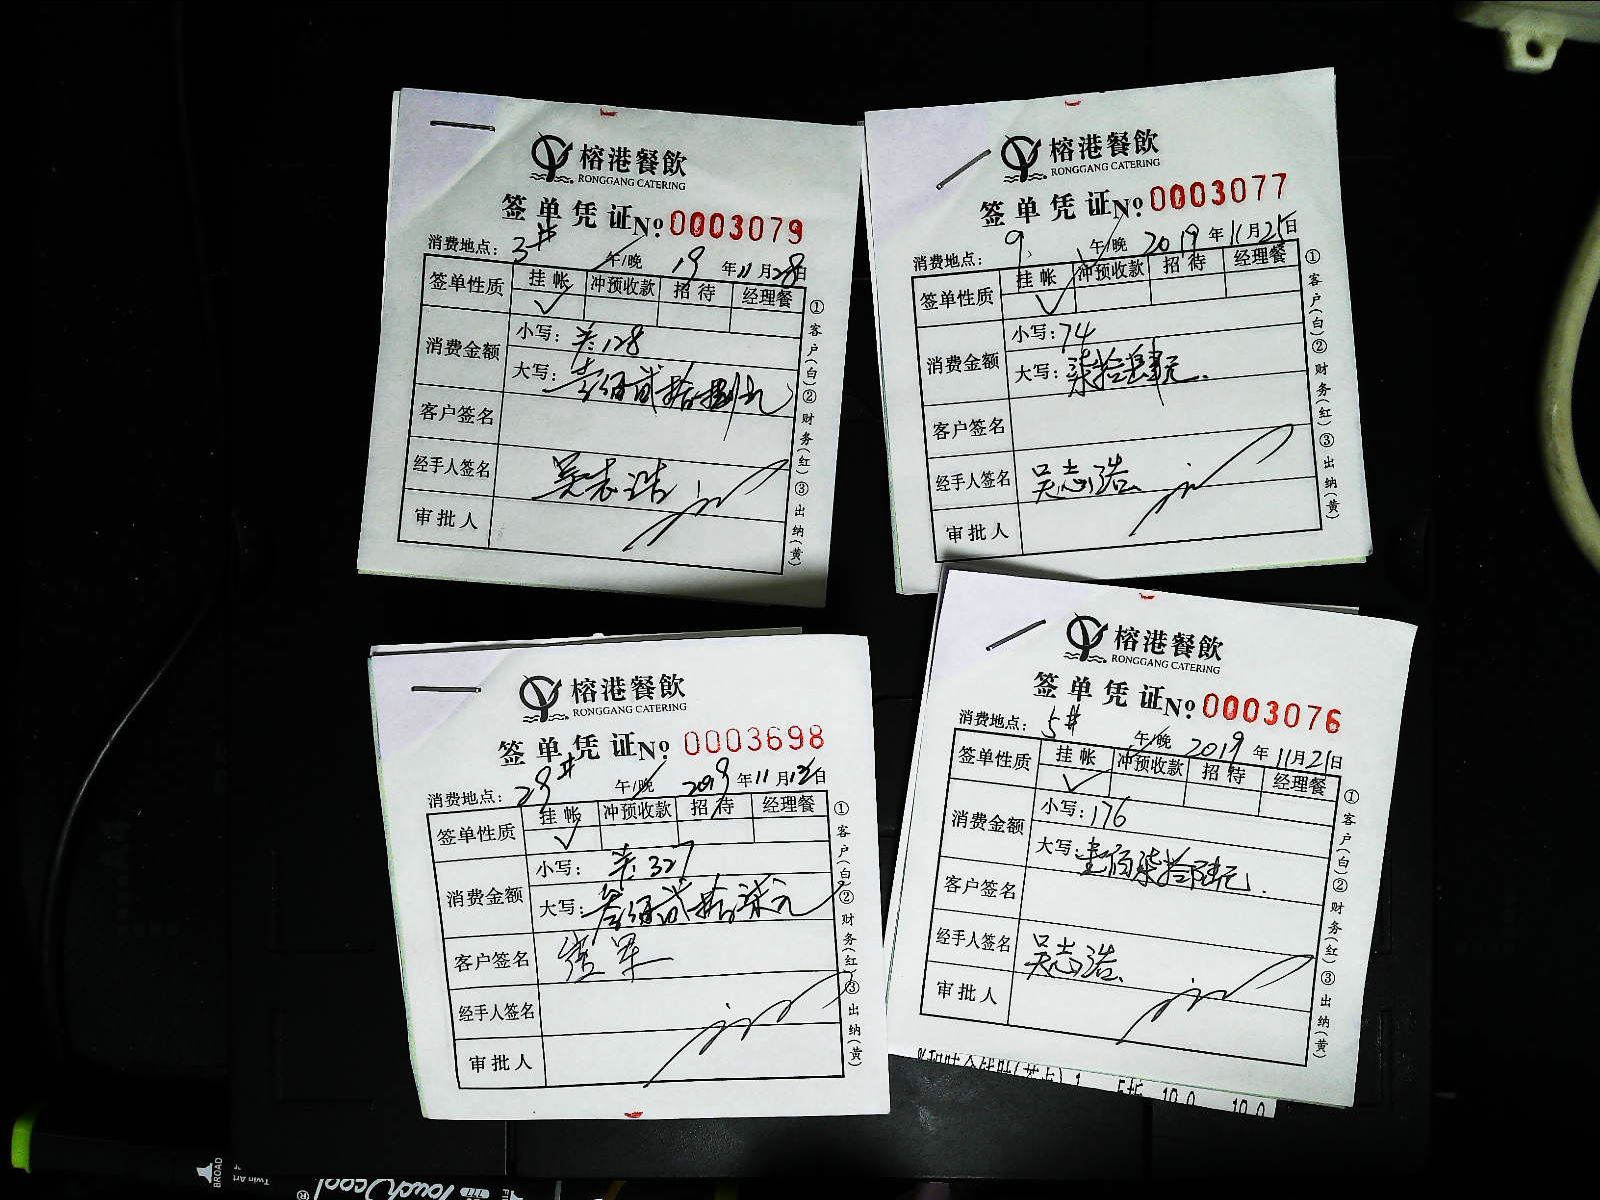 榕港餐飲
RONGGANG CATERING
签单凭证 No 0003079
消费地点: 3# 午/晚 19 年 11 月 28 日
签单性质 挂帐 冲预收款 招待 经理餐
✓
消费金额 小写: 128
大写: 壹佰贰拾捌元
客户签名
经手人签名 吴志浩
审批人
①客户(白)②财务(红)③出纳(黄)
榕港餐飲
RONGGANG CATERING
签单凭证 No 0003077
消费地点: 9 午/晚 2019 年 11 月 25 日
签单性质 挂帐 冲预收款 招待 经理餐
✓
消费金额 小写: 74
大写: 柒拾肆元
客户签名
经手人签名 吴志浩
审批人
①客户(白)②财务(红)③出纳(黄)
榕港餐飲
RONGGANG CATERING
签单凭证 No 0003698
消费地点: 29# 午/晚 2019 年 11 月 12 日
签单性质 挂帐 冲预收款 招待 经理餐
✓
消费金额 小写: 327
大写: 叁佰贰拾柒元
客户签名
经手人签名
审批人
①客户(白)②财务(红)③出纳(黄)
榕港餐飲
RONGGANG CATERING
签单凭证 No 0003076
消费地点: 5# 午/晚 2019 年 11 月 21 日
签单性质 挂帐 冲预收款 招待 经理餐
✓
消费金额 小写: 176
大写: 壹佰柒拾陆元
客户签名
经手人签名 吴志浩
审批人
①客户(白)②财务(红)③出纳(黄)
1 10.0 10.0
BROAD
Twin Art
Touch cool